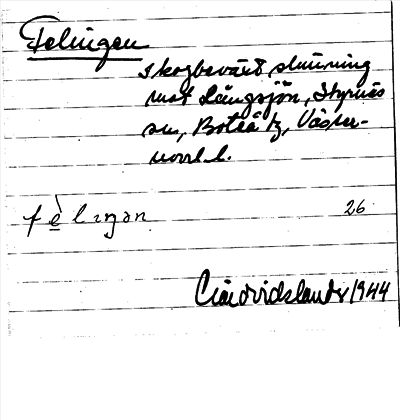 Felingen
skogbevärt sluttning
mot Långsjön, Styrnäs
sn, Boteå tg, Väster-
norrl. l.
fèlıŋən 26
1944